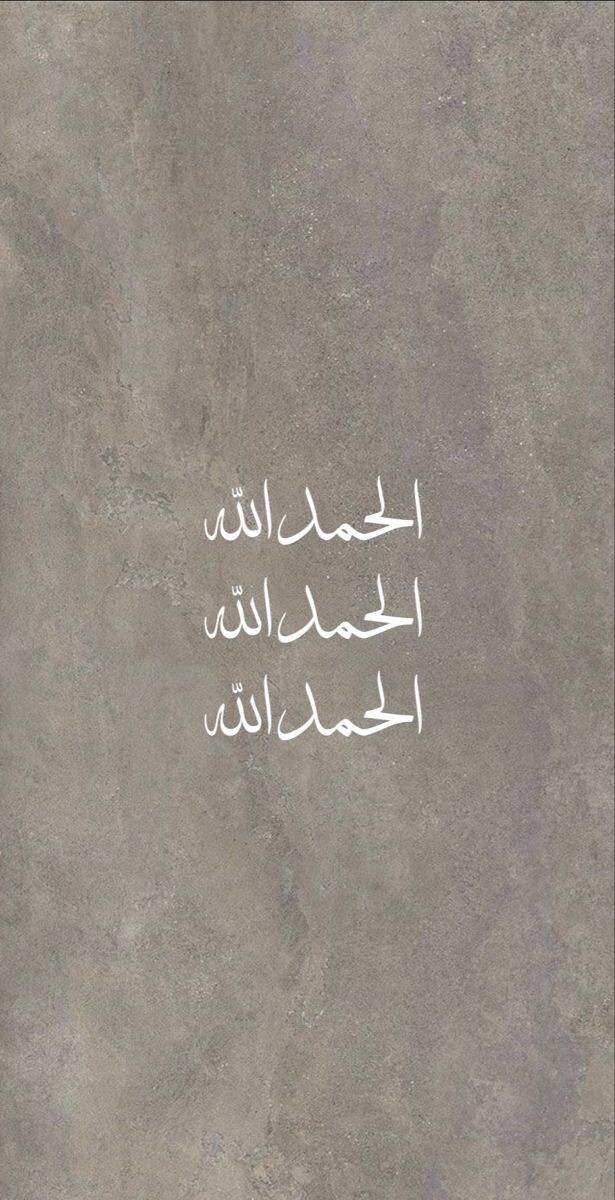 الحمد الله
الحمد الله
الحمد الله